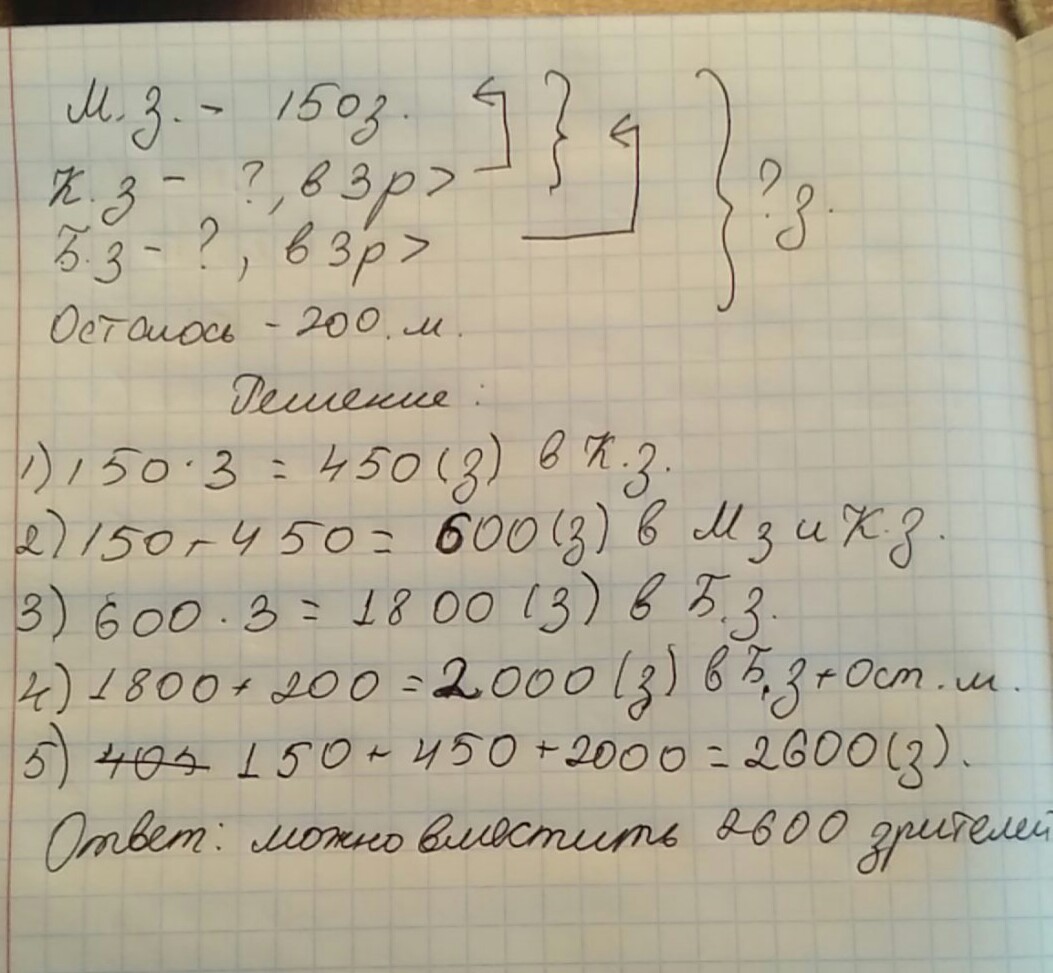 М.з. - 150з.
К.з - ?, в 3р >
Б.з - ?, в 3р >
?з.
Осталось - 200.м.
Решение:
1) 150·3 = 450(з) в К.з.
2) 150+450= 600(з) в Мз и К.з.
3) 600·3=1800(з) в Б.з.
4) 1800+200=2000(з) в Б.з+Ост.м.
5) 150+450+2000=2600(з).
Ответ: можно вместить 2600 зрителей